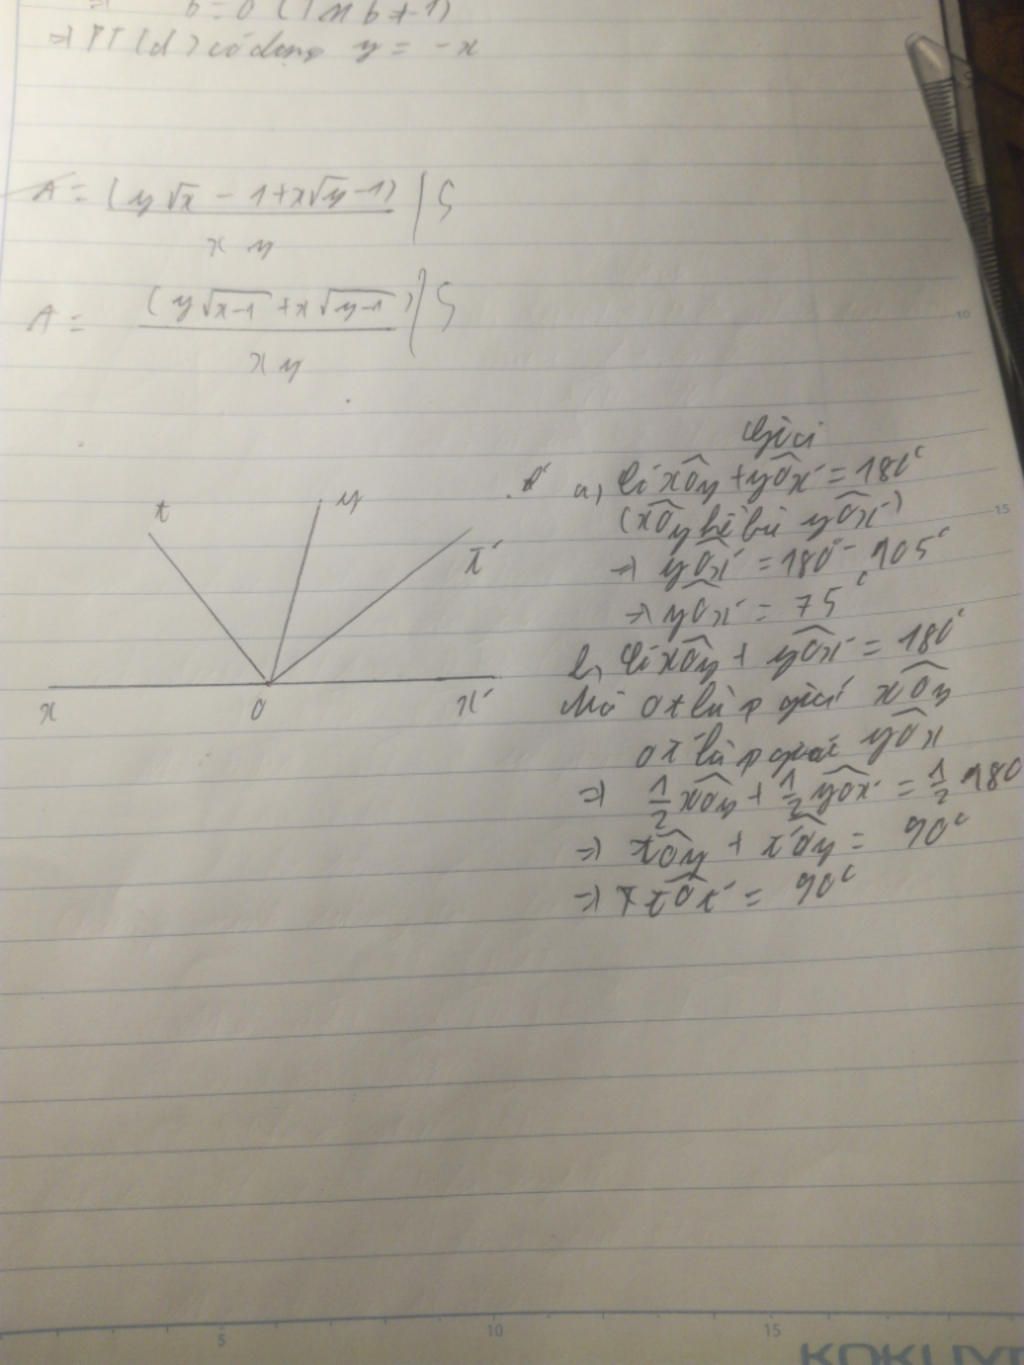 ⇒ b = 0 (TM b ≠ 1)
⇒ PT (d) có dạng y = -x
A = (y√x - 1 + x√y - 1) / 5
x y
A = (y√x-1 + x√y-1) / 5
x y
10
Giải
a, Có xOy + yOx' = 180°
15
(xOy kề bù yOx')
⇒ yOx' = 180° - 105°
⇒ yOx' = 75°
t
y
t'
x
O
x'
b, Có xOy + yOx' = 180°
Mà Ot là p giác xOy
Ot' là p giác yOx
⇒ 1/2 xOy + 1/2 yOx' = 1/2 180
⇒ tOy + t'Oy = 90°
⇒ tOt' = 90°
5 10 15
KOKUYO